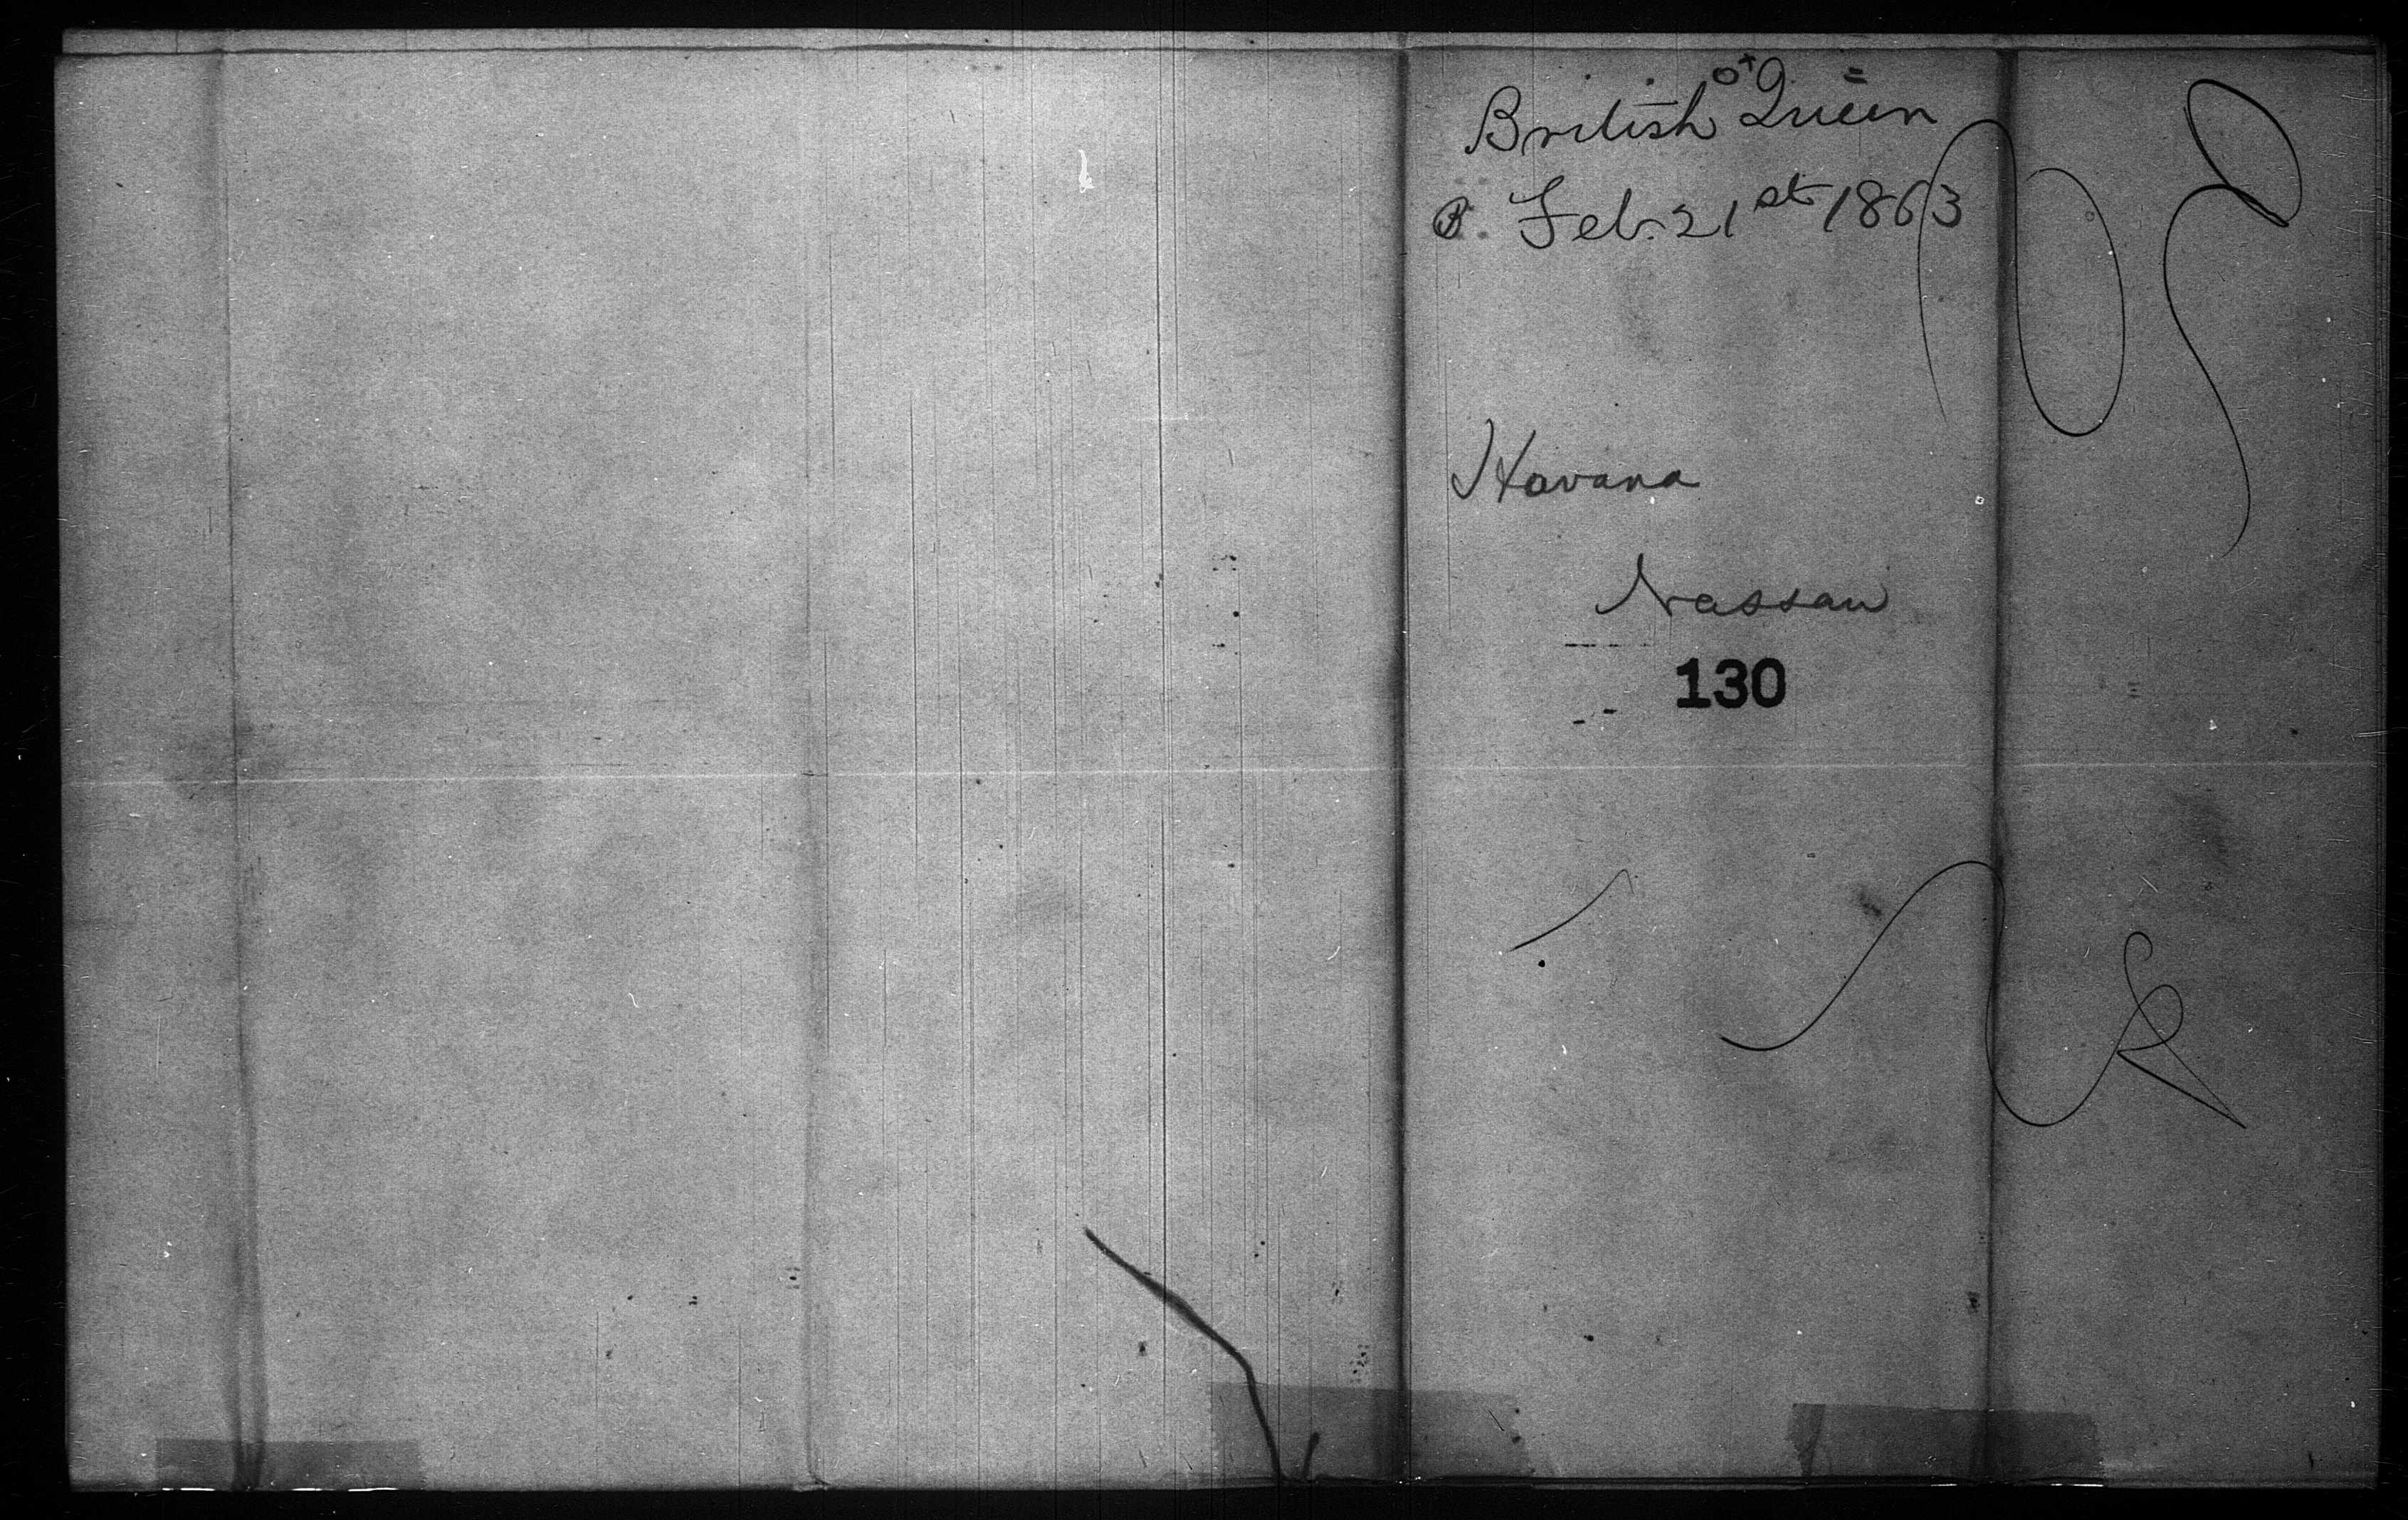 British Queen
B. Feb. 21st 1863
Havana
Nassau
130